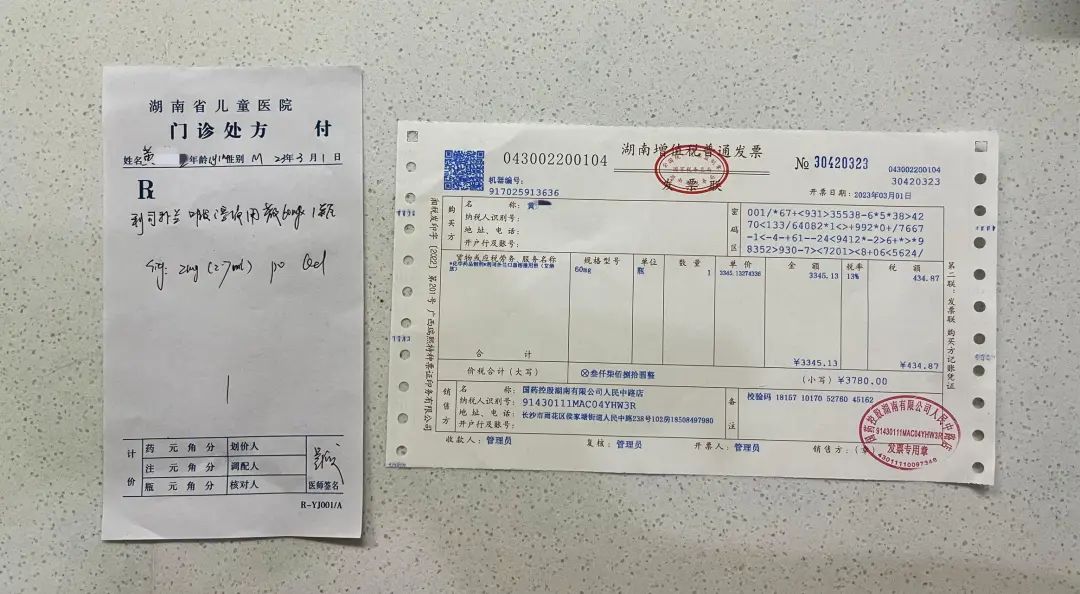 湖南省儿童医院
门诊处方 付
姓名 黄 年龄 性别 M 23年3月1日
R
利司扑兰口服溶液用散60mg×1瓶
sig: 2mg (2.7ml) po Qd
计价
药 元 角 分 划价人
注 元 角 分 调配人
瓶 元 角 分 核对人
医师签名
R-YJ001/A
043002200104
湖南增值税普通发票
发票联
№ 30420323
043002200104
30420323
机器编号:
917025913636
开票日期:2023年03月01日
购买方
名 称:黄
纳税人识别号:
地 址、电 话:
开户行及账号:
密码区
001/*67+<931>35538-6*5*38>42
70<133/64082*1<>+992*0+/7667
-1<-4-+61--24<9412*-2>6+*>*98
8352>930-7><7201><8+06<5624/
货物或应税劳务、服务名称 规格型号 单位 数 量 单 价 金 额 税率 税 额
60mg 瓶 1 3345.13274336 3345.13 13% 434.87
合 计 ¥3345.13 ¥434.87
价税合计(大写) ⊗叁仟柒佰捌拾圆整 (小写)¥3780.00
销售方
名 称: 国药控股湖南有限公司人民中路店
纳税人识别号: 91430111MAC04YHW3R
地 址、电 话: 长沙市雨花区侯家塘街道人民中路238号102房18508497980
开户行及账号:
备注
校验码 18157 10170 52760 45162
收款人: 管理员 复核: 管理员 开票人: 管理员 销售方:(章)
第二联:发票联 购买方记账凭证
国药控股湖南有限公司人民中路店
91430111MAC04YHW3R
发票专用章